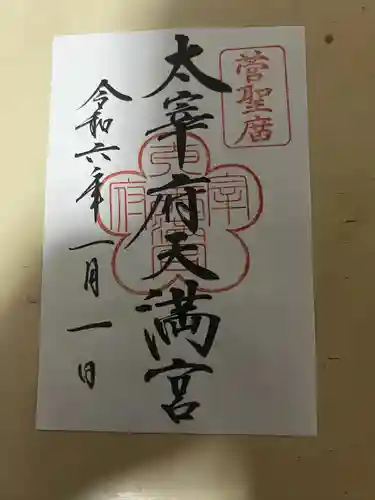 菅聖廟
太宰府天満宮
令和六年一月一日